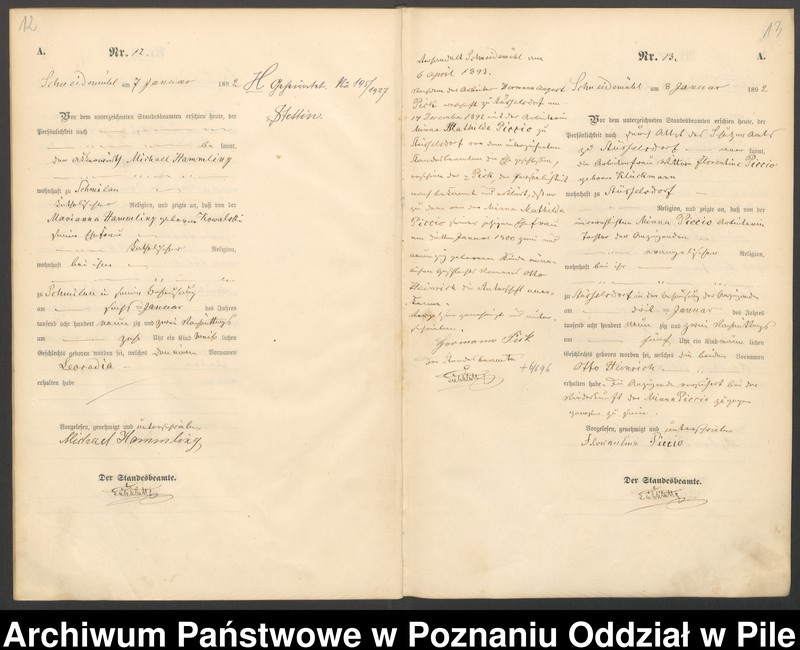 12
A.
Nr. 12.
Schneidemühl am 7 Januar 1892
H Geheiratet. No 195/1927
Stettin.
Vor dem unterzeichneten Standesbeamten erschien heute, der
Persönlichkeit nach
be kannt,
den Michael Hammling
wohnhaft zu Schmilau
katholischer Religion, und zeigte an, daß von der
Marianna Hammling geborenen Kowalski
seiner Ehefrau
katholischer Religion,
wohnhaft bei ihm
zu Schmilau in seiner Behausung
am fünf ten Januar des Jahres
tausend acht hundert neun zig und zwei Nachmittags
um Uhr ein Kind weib lichen
Geschlechts geboren worden sei, welches den Vornamen
Leocadia
erhalten habe
Vorgelesen, genehmigt und unterschrieben
Michael Hammling
Der Standesbeamte.
13
Schneidemühl am
6 April 1893.
der Arbeiter Hermann August
Pick wohnhaft zu Stüsselsdorf am
14 December 1892 mit der Arbeiterin
Minna Mathilde Piccio zu
Stüsselsdorf vor dem unterzeichneten
Standesbeamten die Ehe geschlossen,
erschien der p Pick der Persönlichkeit
nach bekannt und erklärt, daß er
zu dem von der Minna Mathilde
Piccio seiner jetzigen Ehefrau
am dritten Januar 1800 zwei und
neunzig geborenen Kinde männ-
lichen Geschlechts Namens Otto
Heinrich die Vaterschaft aner-
kenne.
Vorgelesen genehmigt und unter-
schrieben.
Hermann Pick
Der Standesbeamte
Nr. 13.
A.
Schneidemühl am 8 Januar 1892
Vor dem unterzeichneten Standesbeamten erschien heute, der
Persönlichkeit nach durch Attest des Schulzen Amts
zu Stüsselsdorf aner kannt,
die Arbeiterfrau Wittwe Florentine Piccio
geborene Klückmann
wohnhaft zu Stüsselsdorf
Religion, und zeigte an, daß von der
unverehelichten Minna Piccio Arbeiterin
Tochter der Anzeigenden
evangelischer Religion,
wohnhaft bei ihr
zu Stüsselsdorf in der Behausung der Anzeigenden
am drit ten Januar des Jahres
tausend acht hundert neun zig und zwei Nachmittags
um fünf Uhr ein Kind männ lichen
Geschlechts geboren worden sei, welches die beiden Vornamen
Otto Heinrich
erhalten habe. Die Anzeigende versichert bei der
Niederkunft der Minna Piccio zugegen
gewesen zu sein.
Vorgelesen, genehmigt und unterschrieben
Piccio
Der Standesbeamte.
Archiwum Państwowe w Poznaniu Oddział w Pile